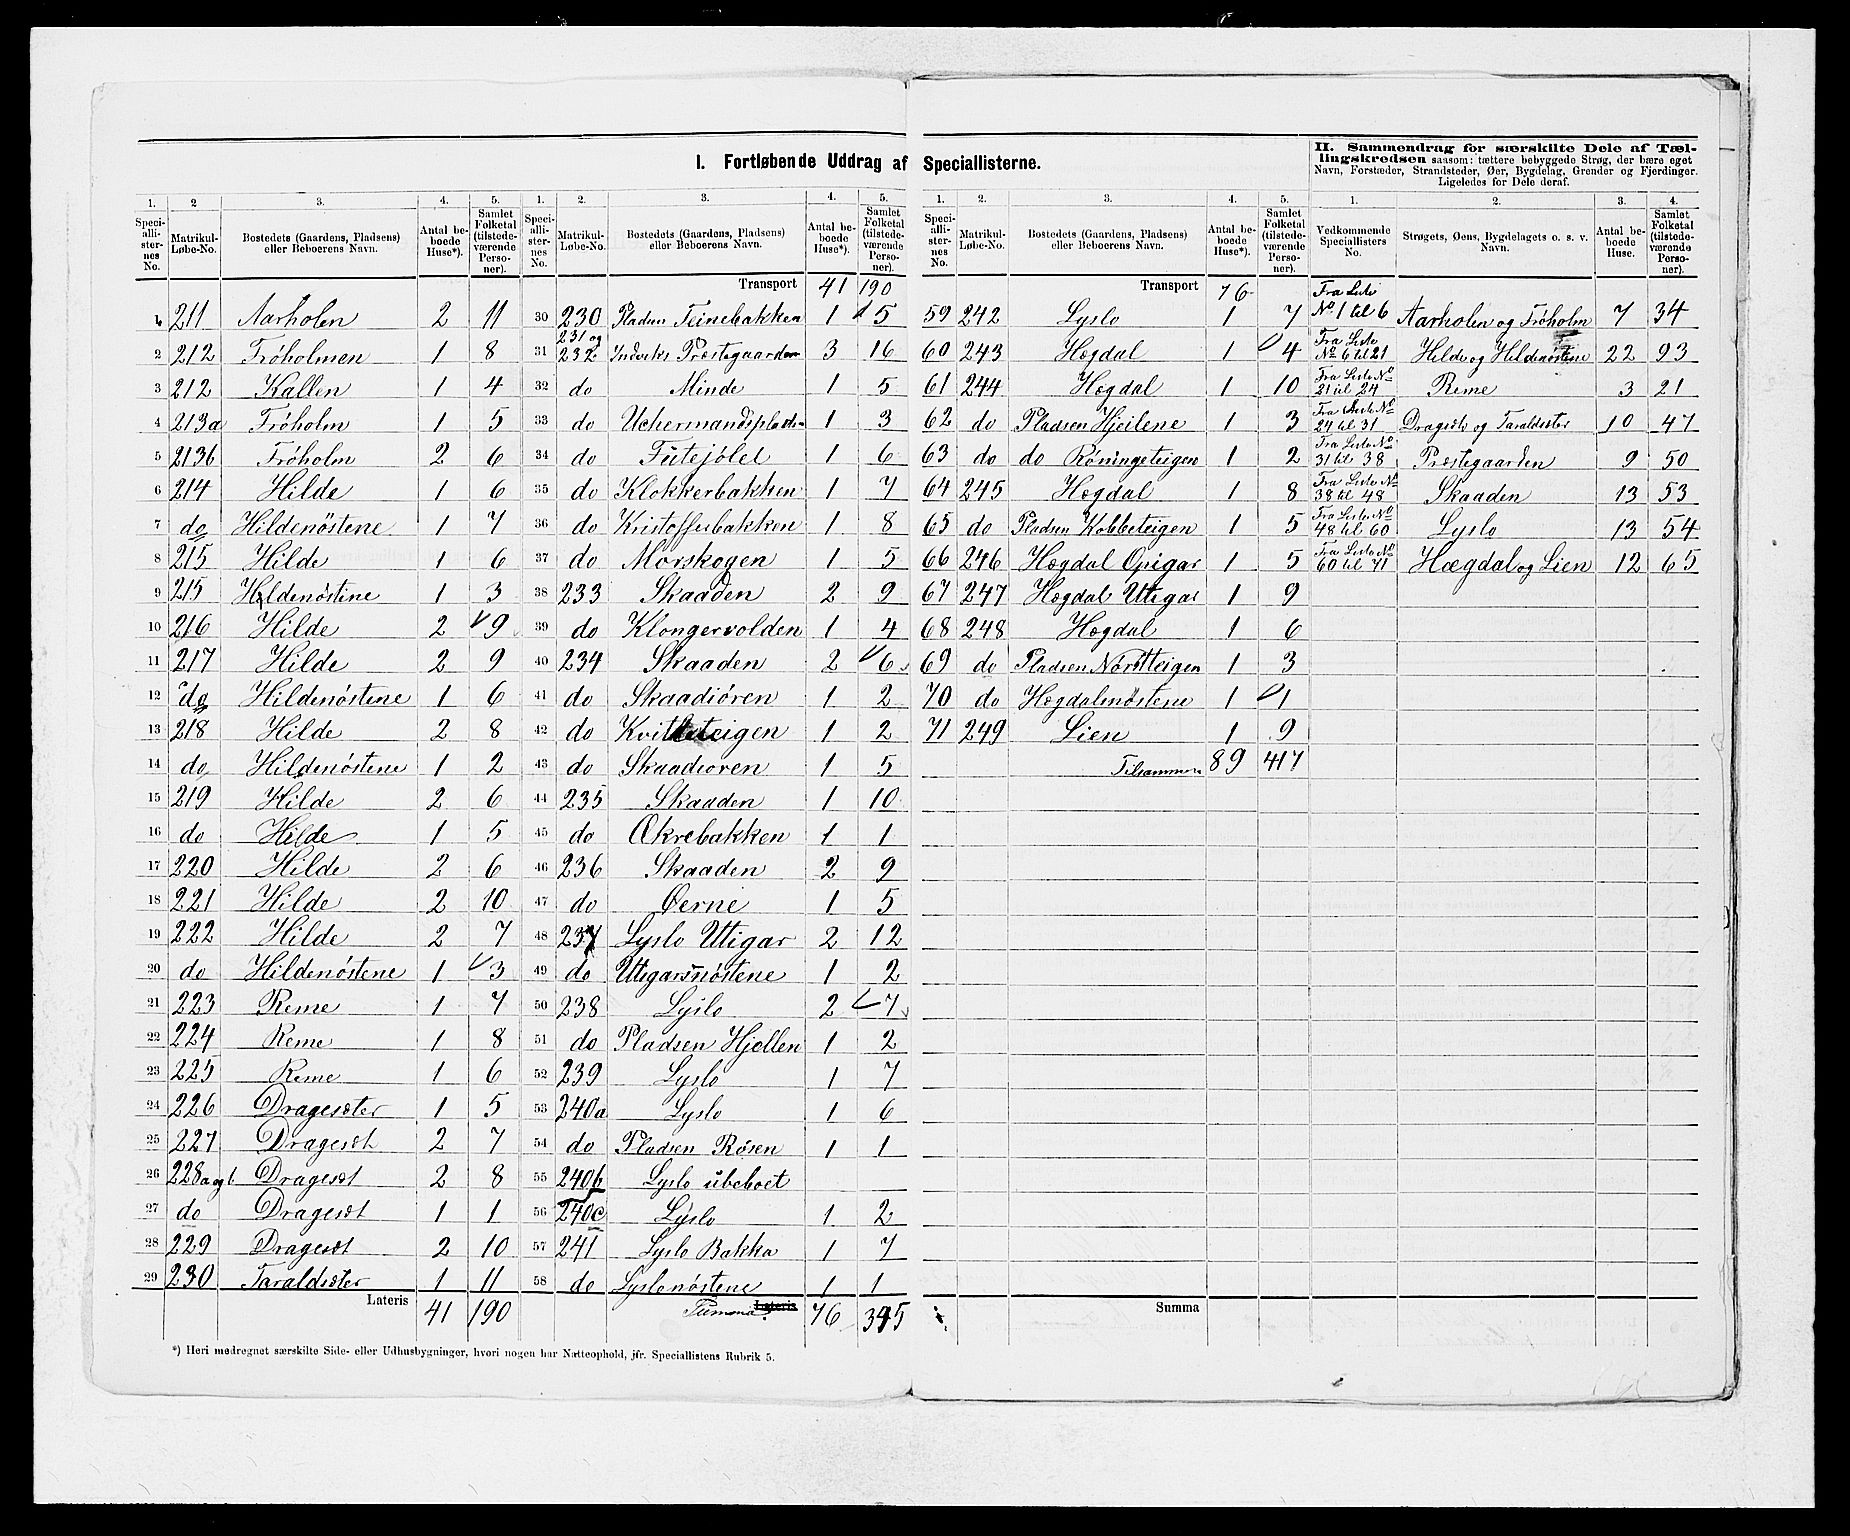 I. Fortløbende Uddrag af Speciallisterne.
II. Sammendrag for særskilte Dele af Tællingskredsen saasom: tættere bebyggede Strøg, der bære eget
Navn, Forstæder, Strandsteder, Øer, Bygdelag, Grender og Fjerdinger.
Ligeledes for Dele deraf.
1. 2 3. 4. 5.
Speciallisternes No. Matrikul-Løbe-No. Bostedets (Gaardens, Pladsens) eller Beboerens Navn. Antal beboede Huse*). Samlet Folketal (tilstedeværende Personer).
1 211 Aarholen 2 11
2 212 Frøholmen 1 8
3 212 Kallen 1 4
4 213a Frøholm 1 5
5 213b Frøholm 2 6
6 214 Hilde 1 6
7 do Hildenöstene 1 7
8 215 Hilde 1 6
9 215 Hildenöstene 1 3
10 216 Hilde 2 9
11 217 Hilde 2 9
12 do Hildenöstene 1 6
13 218 Hilde 2 8
14 do Hildenöstene 1 2
15 219 Hilde 2 6
16 do Hilde 1 5
17 220 Hilde 2 6
18 221 Hilde 2 10
19 222 Hilde 2 7
20 do Hildenöstene 1 3
21 223 Reme 1 7
22 224 Reme 1 8
23 225 Reme 1 6
24 226 Dragesæter 1 5
25 227 Dragesæt 2 7
26 228a og b Dragesæt 2 8
27 do Dragesæt 1 1
28 229 Dragesæt 2 10
29 230 Taraldsæter 1 11
Lateris 41 190
1. 2. 3. 4. 5.
Speciallisternes No. Matrikul-Løbe-No. Bostedets (Gaardens, Pladsens) eller Beboerens Navn. Antal beboede Huse*). Samlet Folketal (tilstedeværende Personer).
Transport 41 190
30 230 Pladsen Teinebakken 1 5
31 231 og 232 Indviks Præstegaarden 3 16
32 do Minde 1 5
33 do 1 3
34 do 1 6
35 do Klokkerbakken 1 7
36 do Kristofferbakken 1 8
37 do Morskogen 1 5
38 233 Skaaden 2 9
39 do Klongervolden 1 4
40 234 Skaaden 2 6
41 do Skaadiören 1 2
42 do Kvitleteigen 1 2
43 do Skaadiören 1 5
44 235 Skaaden 1 10
45 do Økrebakken 1 1
46 236 Skaaden 2 9
47 do Øerne 1 5
48 237 Lyslo Utigar 2 12
49 do Utigarsnöstene 1 2
50 238 Lyslo 2 7
51 do Pladsen Hjellen 1 2
52 239 Lyslo 1 7
53 240a Lyslo 1 6
54 do Pladsen Røsen 1 1
55 240b Lyslo ubeboet
56 240c Lyslo 1 2
57 241 Lyslo Bakka 1 7
58 do Lyslonöstene 1 1
Lateris Summa 76 395
1. 2. 3. 4. 5.
Speciallisternes No. Matrikul-Løbe-No. Bostedets (Gaardens, Pladsens) eller Beboerens Navn. Antal beboede Huse*). Samlet Folketal (tilstedeværende Personer).
Transport 76
59 242 Lyslo 1 7
60 243 Hægdal 1 4
61 244 Hægdal 1 10
62 do Pladsen Hjeilene 1 3
63 do do Röningeteigen 1 2
64 245 Hægdal 1 8
65 do Pladsen Kobbeteigen 1 5
66 246 Hægdal Opigar 1 5
67 247 Hægdal Utigar 1 9
68 248 Hægdal 1 6
69 do Pladsen Nörstteigen 1 3
70 do Hægdalsnöstene 1 1
71 249 Lien 1 9
Tilsammen 89 417
Summa
1. 2. 3. 4.
Vedkommende Speciallisters No. Strøgets, Øens, Bygdelagets o. s. v. Navn. Antal beboede Huse. Samlet Folketal (tilstedeværende Personer).
Fra Liste No 1 til 6 Aarholen og Frøholm 7 34
Fra Liste No 6 til 21 Hilde og Hildenöstene 22 93
Fra Liste No 21 til 24 Reme 3 21
Fra Liste No 24 til 31 Dragesæt og Taraldsæter 10 47
Fra Liste No 31 til 38 Præstegaarden 9 50
Fra Liste No 38 til 48 Skaaden 13 53
Fra Liste No 48 til 60 Lyslo 13 54
Fra Liste No 60 til 71 Hægdal og Lien 12 65
*) Heri medregnet særskilte Side- eller Udhusbygninger, hvori nogen har Natteophold, jfr. Speciallistens Rubrik 5.